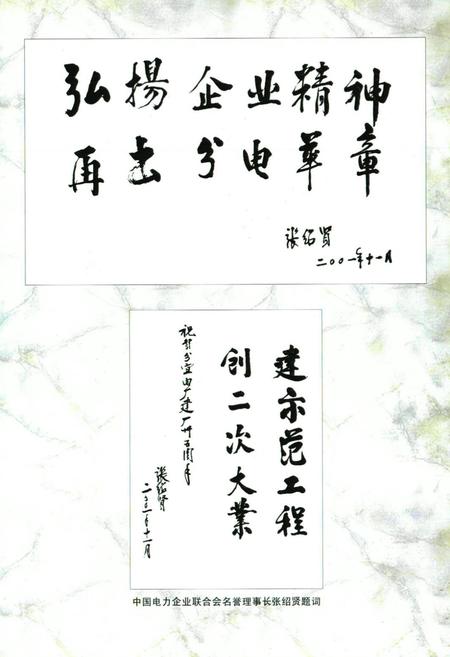 弘揚企业精神
再书分电华章
张绍贤
二〇〇一年十一月
建示范工程
创二次大業
祝贺分宜电厂建厂卅五周年
张绍贤
二〇〇一年十一月
中国电力企业联合会名誉理事长张绍贤题词